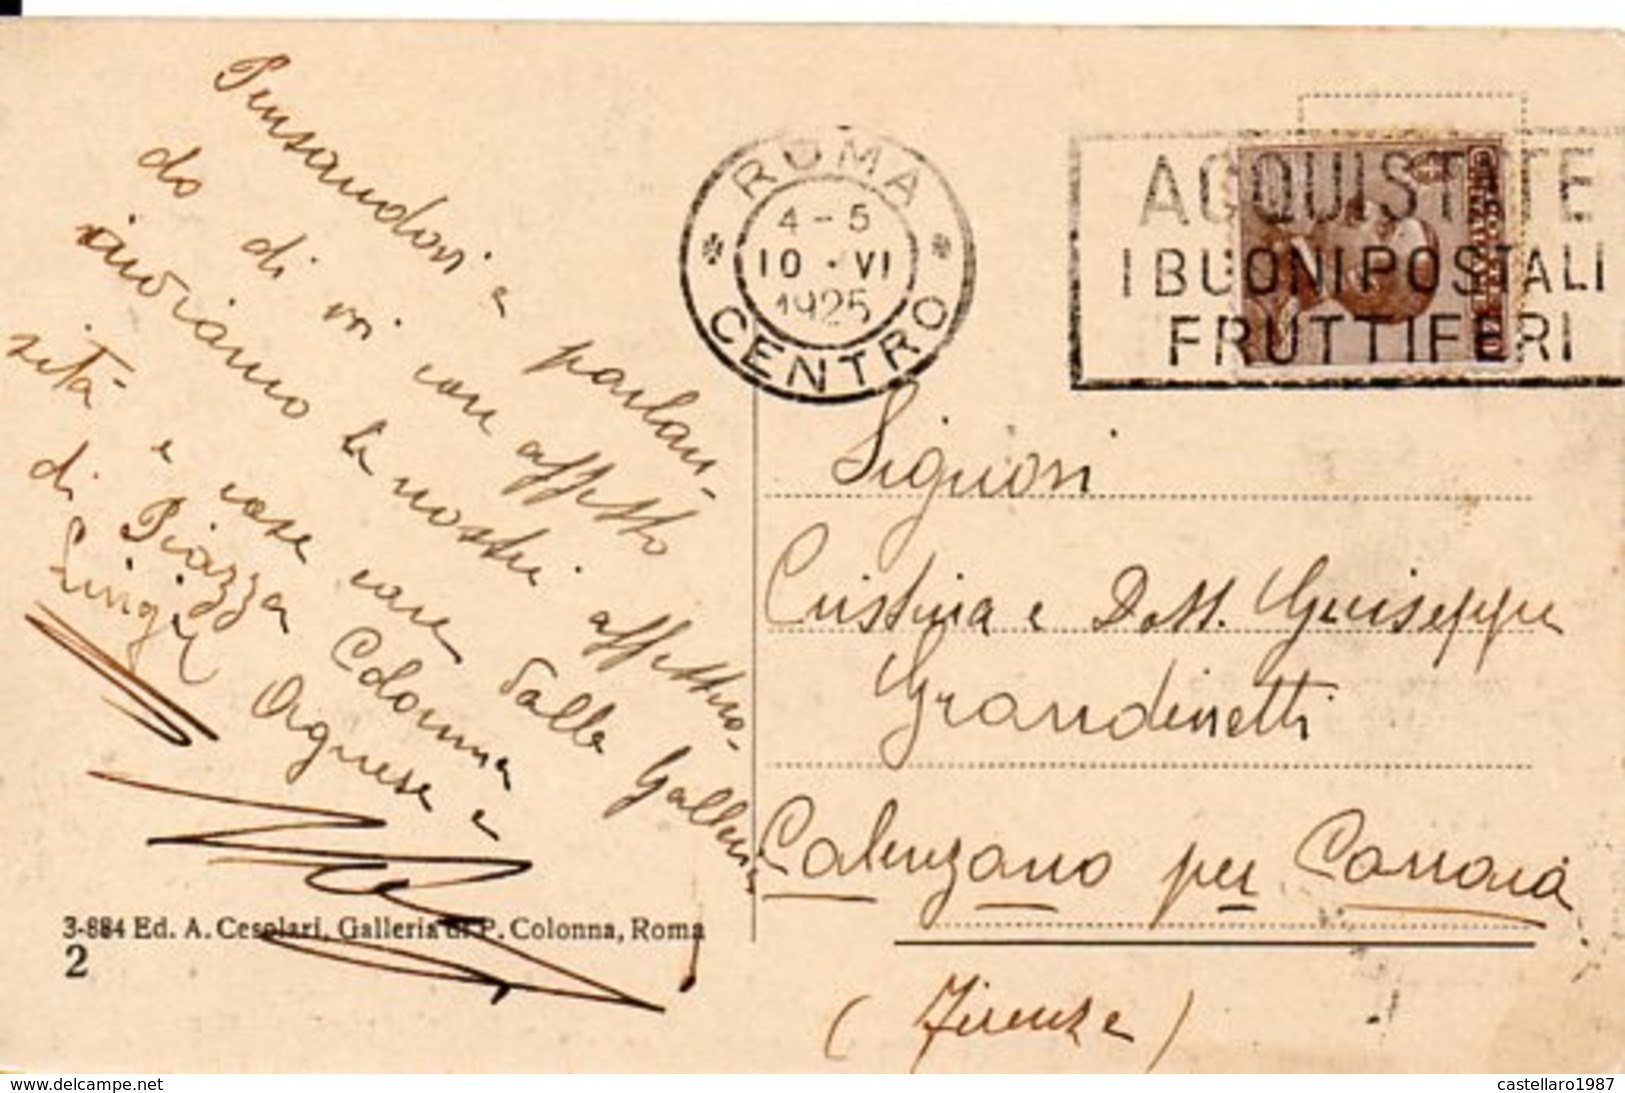 Pensandovi e parlan-
do di voi con affetto
inviamo le nostre affettuo-
sità e cose care dalla Galleria
di Piazza Colonna
Luigi Agnese e
3-884 Ed. A. Cesolari, Galleria di P. Colonna, Roma
2
ROMA
4-5
10·VI
1925
CENTRO
ACQUISTATE
I BUONI POSTALI
FRUTTIFERI
Signori
Cristina e Dott. Giuseppe
Grandinetti
Calenzano per Carraia
(Firenze)
www.delcampe.net
castellaro1987